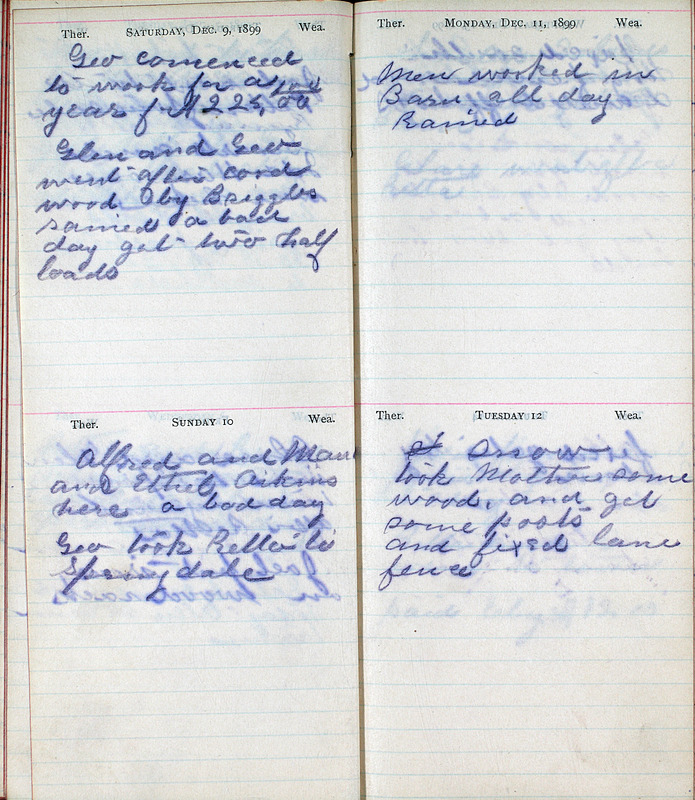 Ther. SATURDAY, DEC. 9, 1899 Wea.
Geo comenced
to work for a
year for $225,00
Glen and Geo
went after cord
wood by Briggs
rained a bad
day got two half
loads
Ther. SUNDAY 10 Wea.
Alfred and
and Ethel Askins
here a bad day
Geo took Retta to
Springdale
Ther. MONDAY, DEC. 11, 1899 Wea.
Men worked in
Barn all day
Rained
Ther. TUESDAY 12 Wea.
snow
took Mother some
wood, and get
some posts
and fixed lane
fence